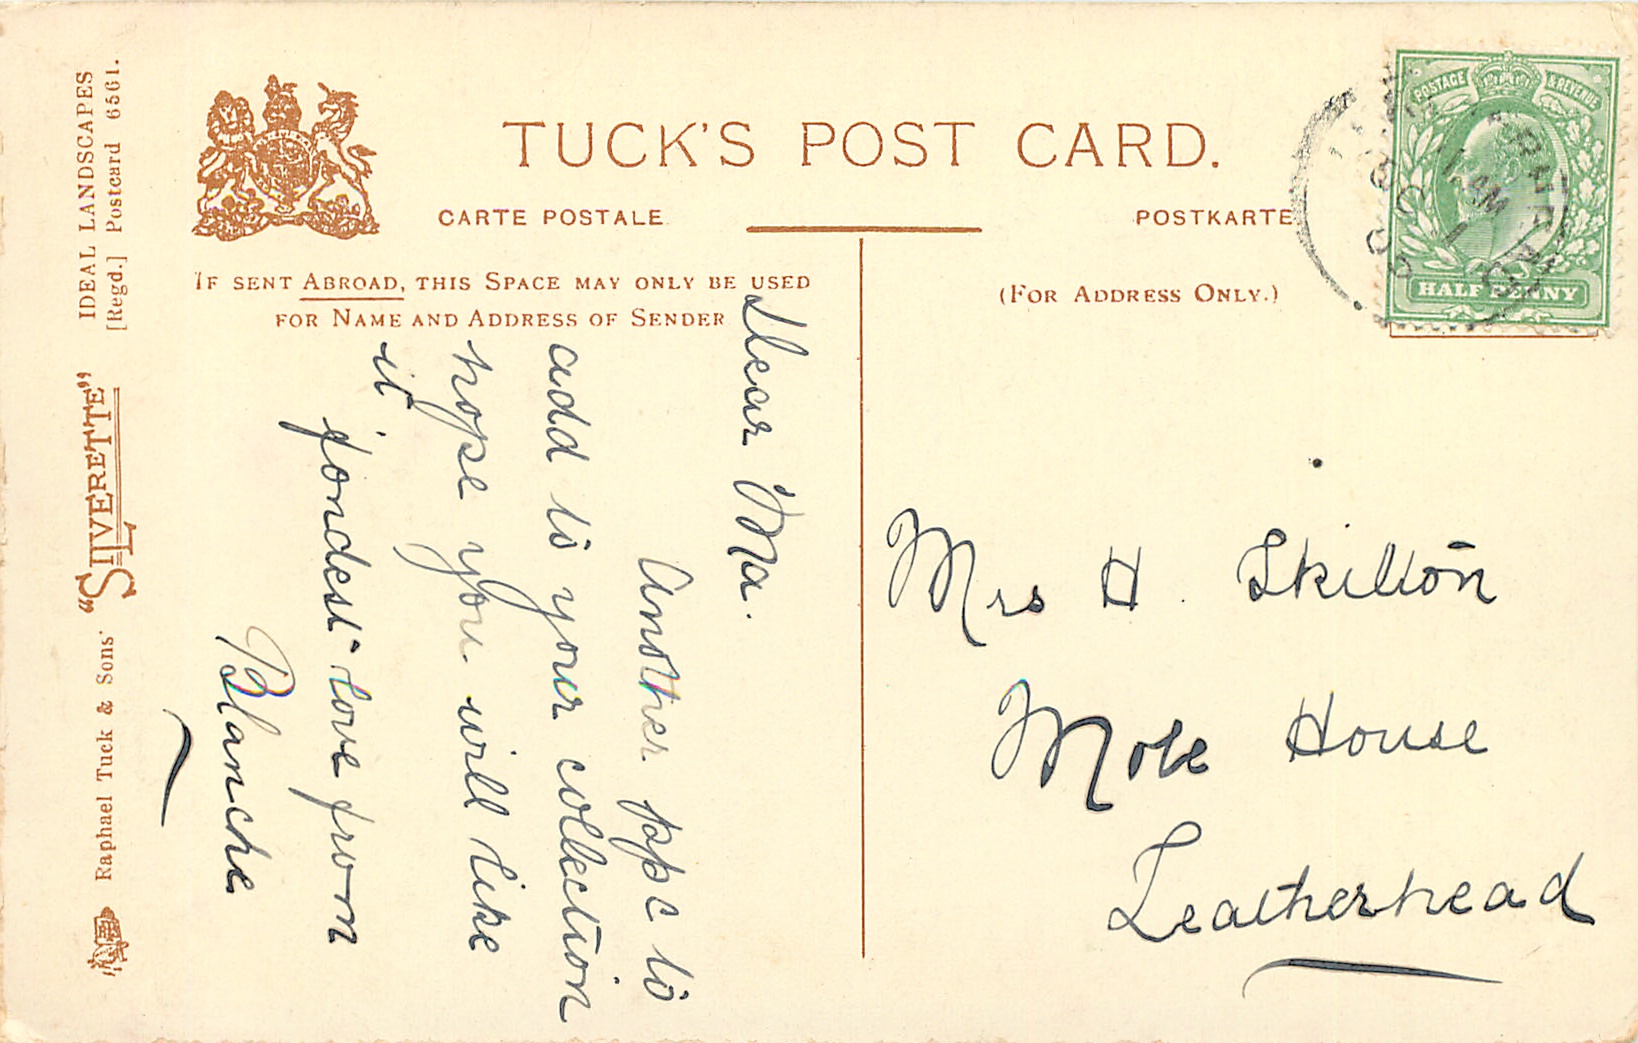 TUCK'S POST CARD.
CARTE POSTALE
POSTKARTE
IF SENT ABROAD, THIS SPACE MAY ONLY BE USED
FOR NAME AND ADDRESS OF SENDER
(FOR ADDRESS ONLY.)
POSTAGE & REVENUE
HALF PENNY
11. AM
Dear Ma.
Another ppc to
add to your collection
hope you will like
it
fondest love from
Blanche
Mrs H. Skilton
Mole House
Leatherhead
IDEAL LANDSCAPES
[Regd.] Postcard 6561.
"SILVERETTE"
Raphael Tuck & Sons'